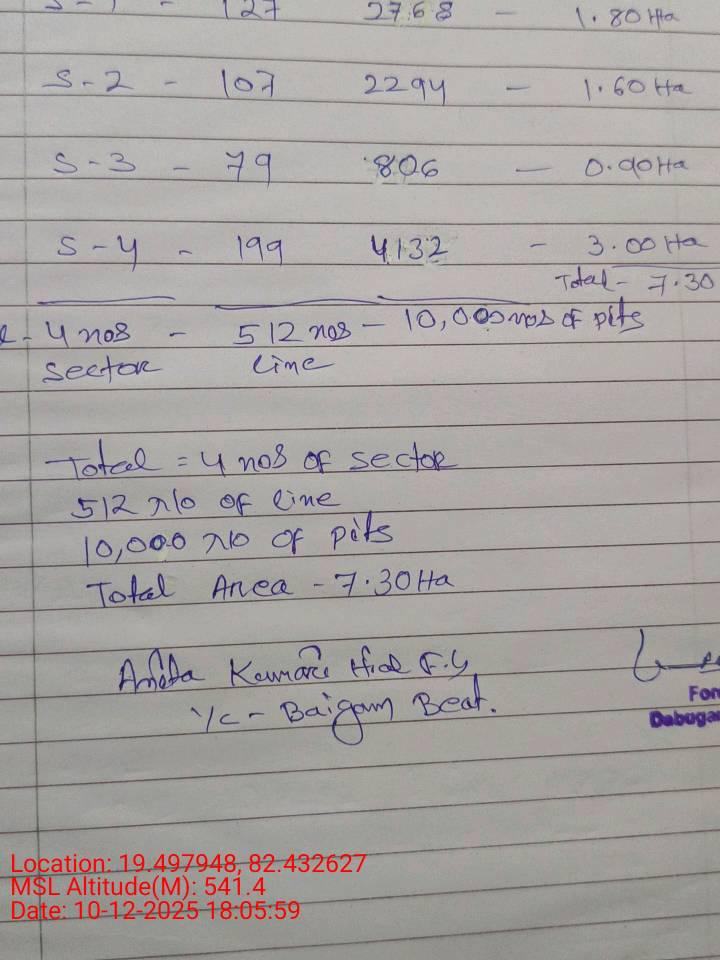 S-1 - 127 2768 - 1.80Ha
S-2 - 107 2294 - 1.60Ha
S-3 - 79 806 - 0.90Ha
S-4 - 199 4132 - 3.00Ha
Total - 7.30
4 nos - 512 nos - 10,000 nos of pits
sector line
Total = 4 nos of sector
512 no of line
10,000 no of pits
Total Area - 7.30Ha
Kumari F.G
I/C - Baigam Beat.
Location: 19.497948, 82.432627
MSL Altitude(M): 541.4
Date: 10-12-2025 18:05:59